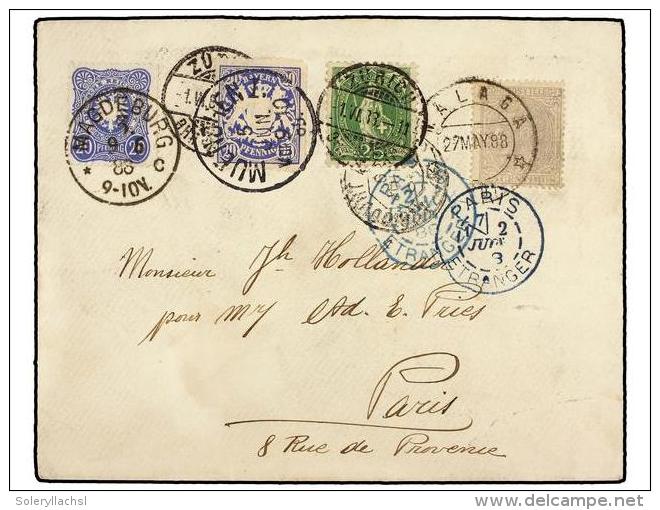 MAGDEBURG
88
9-10V.
20 PFENNIG 20
BAYERN
PFENNIG
MUENCHEN
ZÜRICH
MALAGA
27 MAY 88
PARIS
2
ETRANGER
PARIS
2
JUIN
ETRANGER
Monsieur Jh Hollander
pour mr Ad. E. Pries
Paris
8 Rue de Provence
Soleryllachsl
delcampe.net